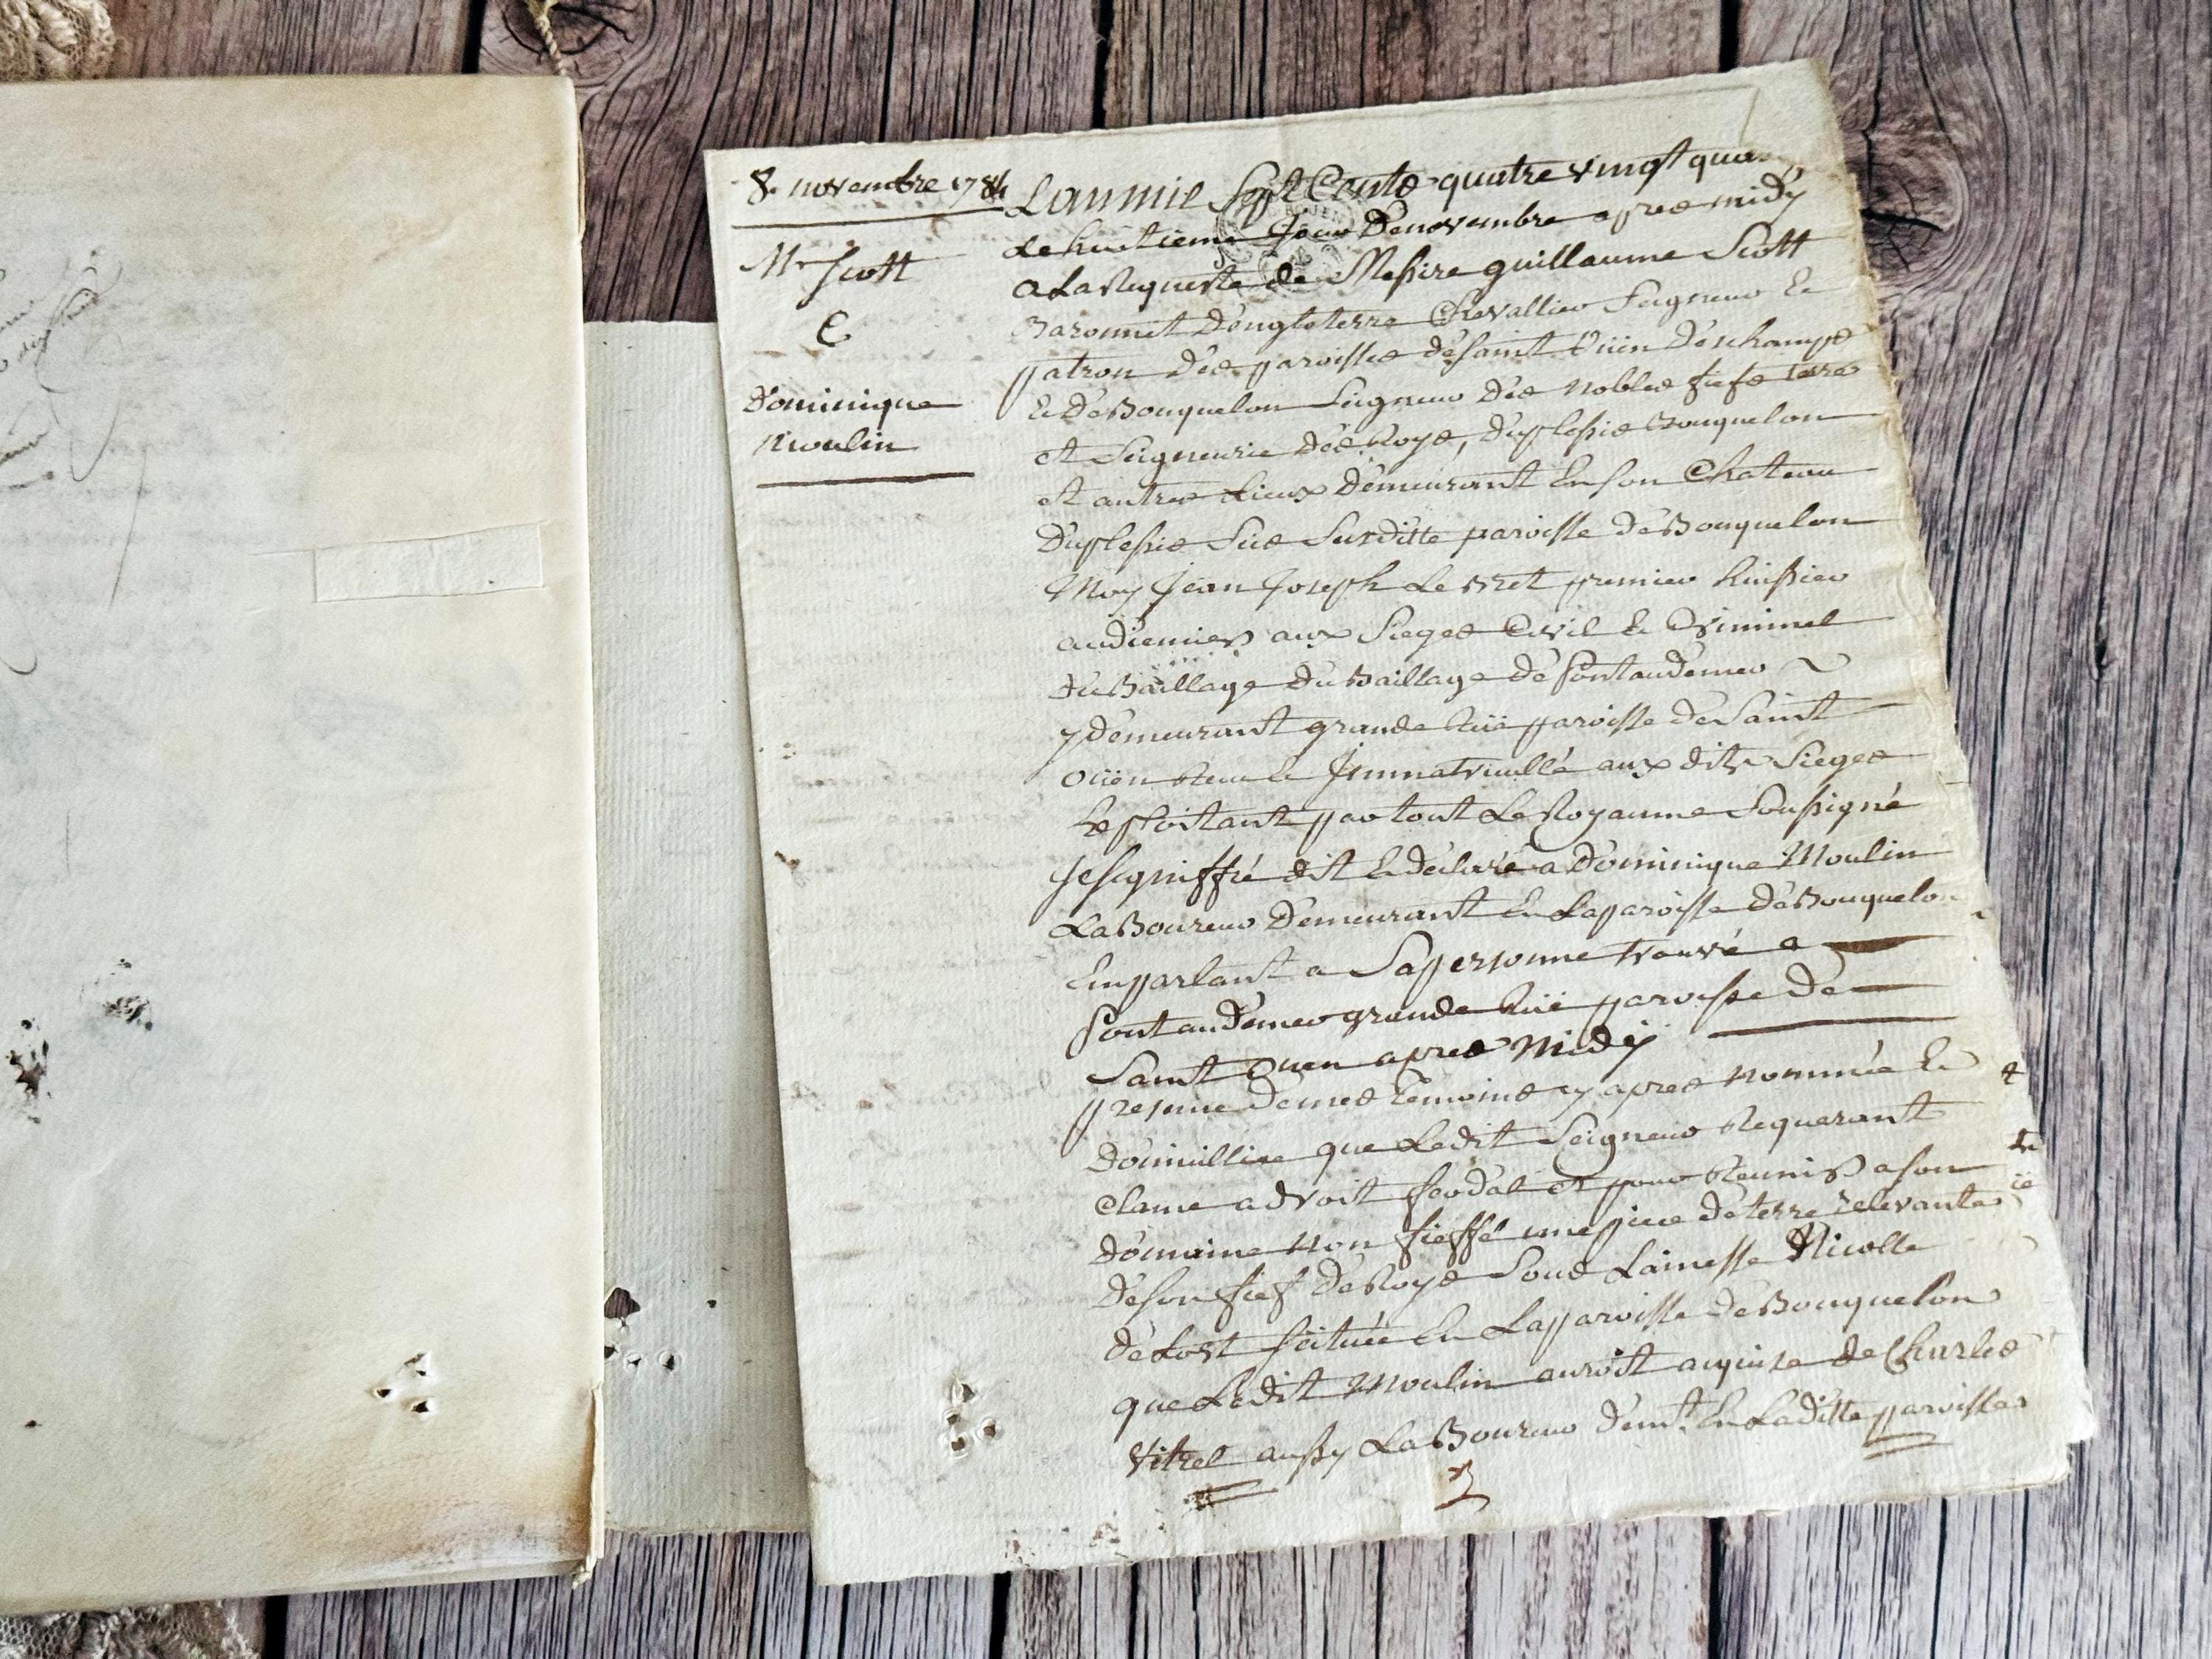 8. novembre 1784
Mr Scott
&
Dominique
Moulin
Lan mil Sept Cents quatre vingt
Le huitieme Jour De novembre apres midy
a La Requeste de Messire guillaume Scott
Baronnet D'engleterre Chevallier Seigneur Et
patron Des paroisses de Saint Oüin Deschamps
Et De Bouquelon Seigneur Des Nobles fiefs terre
et Seigneurie Des Roys, Duplessis Bouquelon
et autres Lieux Demeurant En son Chateau
Duplessis Sus Surditte paroisse de Bouquelon
Moy Jean Joseph Le Bret premier huissier
audiencier aux Sieges Civil Et Criminel
du Baillage Du Baillage de Pontaudemer
y demeurant grande Rüe paroisse de Saint
Oüen Receu Et Immatriculle aux dits Sieges
Exploitant par tout Le Royaume Soussigné
Je signiffié dit Et declaré a Dominique Moulin
LaBoureur Demeurant En La paroisse de Bouquelon
En parlant a Sa personne trouvé a
Pontaudemer grande Rüe paroisse De
Saint Ouen apres Midy
presence de mes temoins cy apres nommés Et
Domicillies que Ledit Seigneur Requerant
Clame a droit feodal et pour Reunir a son
Domaine non fieffé une piece de terre relevante
de son fief De Roys Sous Lainesse Nicolle
de Lost scituée En La paroisse de Bouquelon
que Ledit Moulin auroit acquise de Charles
Vitrel aussy LaBoureur Demt. En Laditte paroisse